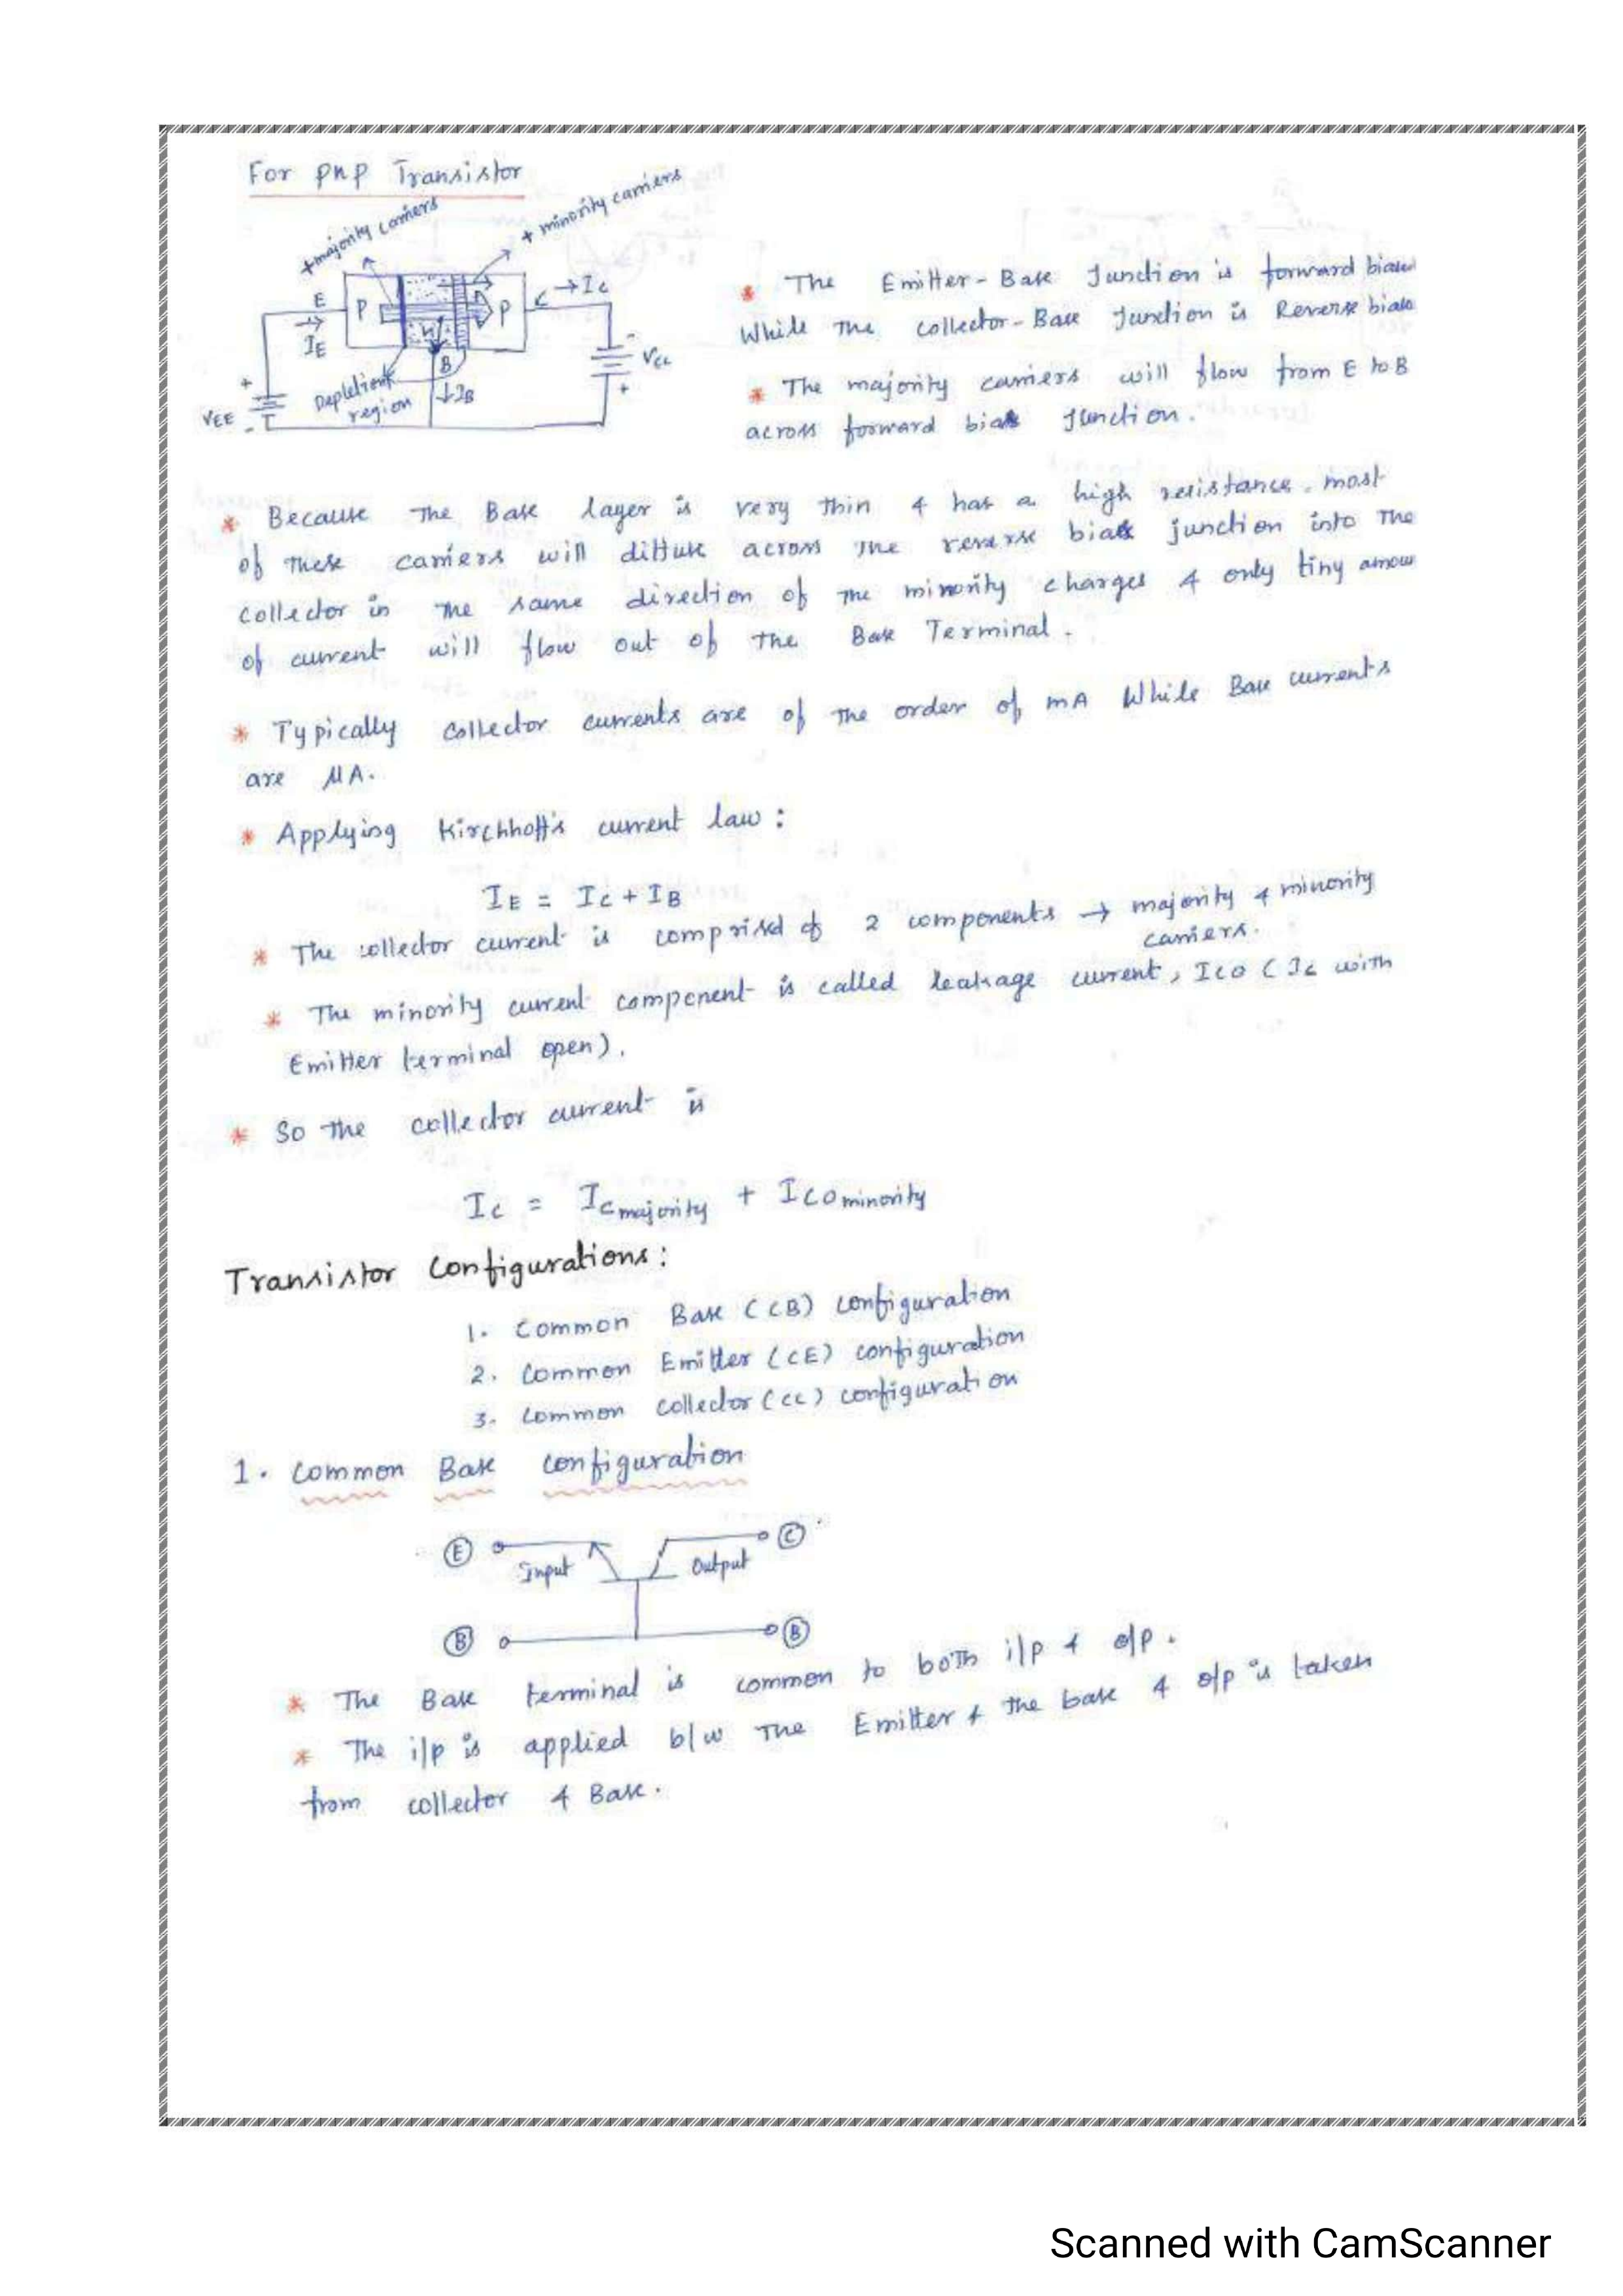 For PNP Transistor
+ majority carriers
+ minority carriers
E
P
N
P
C → Ic
IE
B
↓IB
Depletion
region
+
VEE
-
-
VCC
+
* The Emitter-Base Junction is forward biased
While The collector-Base Junction is Reverse bias
* The majority carriers will flow from E to B
across forward bias Junction.
* Because The Base layer is very thin & has a high resistance. most
of These carriers will diffuse across The reverse bias junction into The
collector in The same direction of The minority charges & only tiny amou
of current will flow out of The Base Terminal.
* Typically collector currents are of The order of mA While Base currents
are µA.
* Applying Kirchhoff's current law :
IE = Ic + IB
* The collector current is comprised of 2 components → majority & minority
carriers.
* The minority current component is called leakage current, ICO (Ic with
Emitter terminal open).
* So The collector current is
Ic = Ic majority + ICO minority
Transistor Configurations :
1. Common Base (CB) configuration
2. Common Emitter (CE) configuration
3. Common collector (CC) configuration
1. Common Base Configuration
E Input Output C
B B
* The Base terminal is common to both i/p & o/p.
* The i/p is applied b/w The Emitter & the base & o/p is taken
from collector & Base.
Scanned with CamScanner